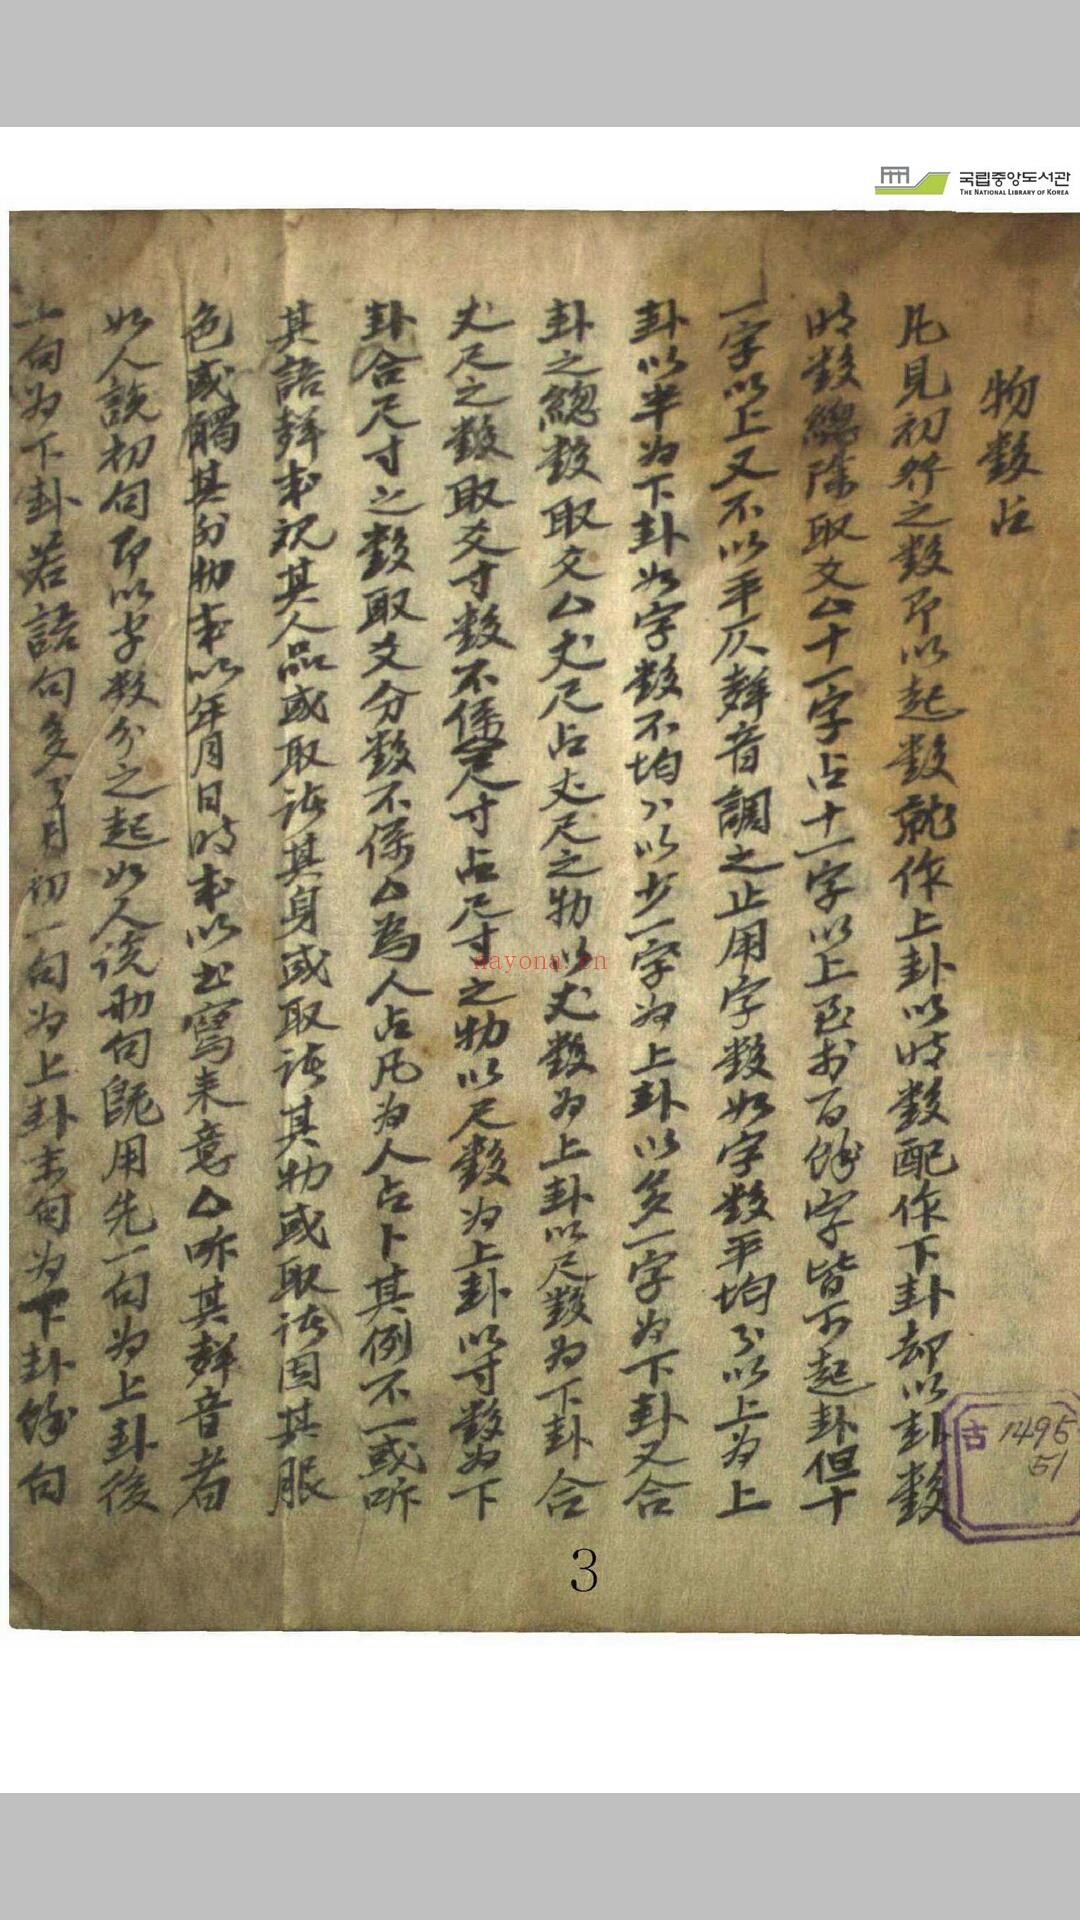 국립중앙도서관
THE NATIONAL LIBRARY OF KOREA
物數占
凡見初行之數即以起數就作上卦以時數配作下卦却以卦數
時數總除取爻△十一字占十一字以上至於百餘字皆可起卦但十
一字以上又不以平仄聲音調之止用字數如字數平均分以上为上
卦以半为下卦如字數不均以少一字为上卦以多一字为下卦又合
卦之總數取爻△丈尺占丈尺之物以丈數为上卦以尺數为下卦合
丈尺之數取爻寸數不係尺寸占尺寸之物以尺數为上卦以寸數为下
卦合尺寸之數取爻分數不係△為人占凡为人占卜其例不一或听
其語聲或視其人品或取诸其身或取诸其物或取诸因其服
色或觸其外物或以年月日时或以书寫来意△听其聲音者
如人說初句即以字数分之起如人说兩句既用先一句为上卦後
一句为下卦若語句多只用初一句为上卦末句为下卦餘句
古
1496
51
nayona.cn
3